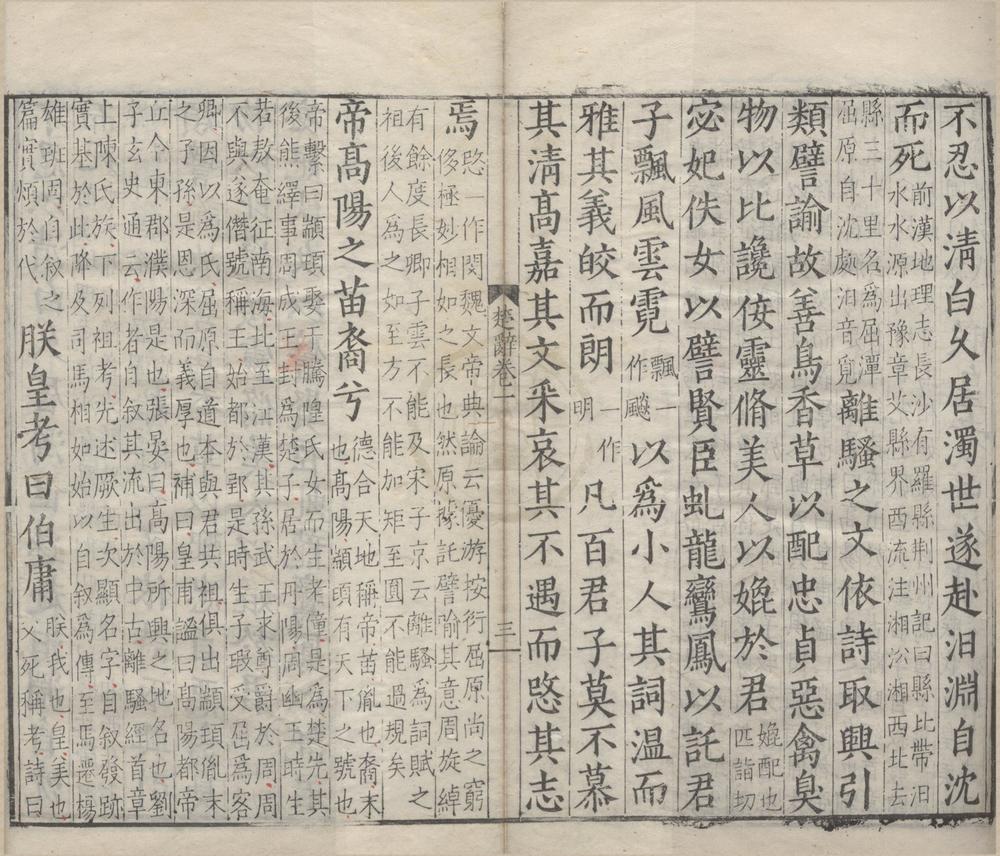 不忍以清白久居濁世遂赴汨淵自沈
而死
前漢地理志長沙有羅縣荆州記曰縣北帶汨
水水源出豫章艾縣界西流注湘㳂湘西北去
縣三十里名爲屈潭
屈原自沈處汨音覓
離騷之文依詩取興引
類譬諭故善鳥香草以配忠貞惡禽臭
物以比讒佞靈脩美人以媲於君
媲配也
匹詣切
宓妃佚女以譬賢臣虬龍鸞鳳以託君
子飄風雲霓
飄一
作飈
以爲小人其詞温而
雅其義皎而朗
一作
明
凡百君子莫不慕
其清高嘉其文采哀其不遇而愍其志
楚辭卷一
三
焉
愍一作閔魏文帝典論云優游按衍屈原尚之窮
侈極妙相如之長也然原據託譬喻其意周旋綽
有餘度長卿子雲不能及宋子京云離騷爲詞賦之
祖後人爲之如至方不能加矩至圓不能過規矣
帝高陽之苗裔兮
德合天地稱帝苗胤也裔末
也高陽顓頊有天下之號也
帝繫曰顓頊娶于騰隍氏女而生老僮是爲楚先其
後熊繹事周成王封爲楚子居於丹陽周幽王時生
若敖奄征南海北至江漢其孫武王求尊爵於周周
不與遂僭號稱王始都於郢是時生子瑕受屈爲客
卿因以爲氏屈原自道本與君共祖俱出顓頊胤末
之子孫是恩深而義厚也補曰皇甫謐曰高陽都帝
丘今東郡濮陽是也張晏曰高陽所興之地名也劉
子玄史通云作者自叙其流出於中古離騷經首章
上陳氏族下列祖考先述厥生次顯名字自叙發跡
實基於此降及司馬相如始以自叙爲傳至馬遷揚
雄班固自叙之
篇實煩於代
朕皇考曰伯庸
朕我也皇美也
父死稱考詩曰